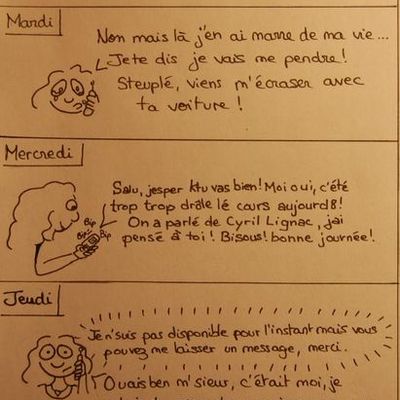 Mardi
Non mais là j'en ai marre de ma vie...
Je te dis je vais me pendre!
Steuplé, viens m'écraser avec
ta voiture!
Mercredi
Salu, jesper ktu vas bien! Moi oui, c'été
trop trop drale lé cours aujourd8!
Bip
Bip
Bip
On a parlé de Cyril Lignac, jai
pensé à toi! Bisous! bonne journée!
Jeudi
Je n'suis pas disponible pour l'instant mais vous
pouvez me laisser un message, merci.
Ouais ben m'sieur, c'était moi, je